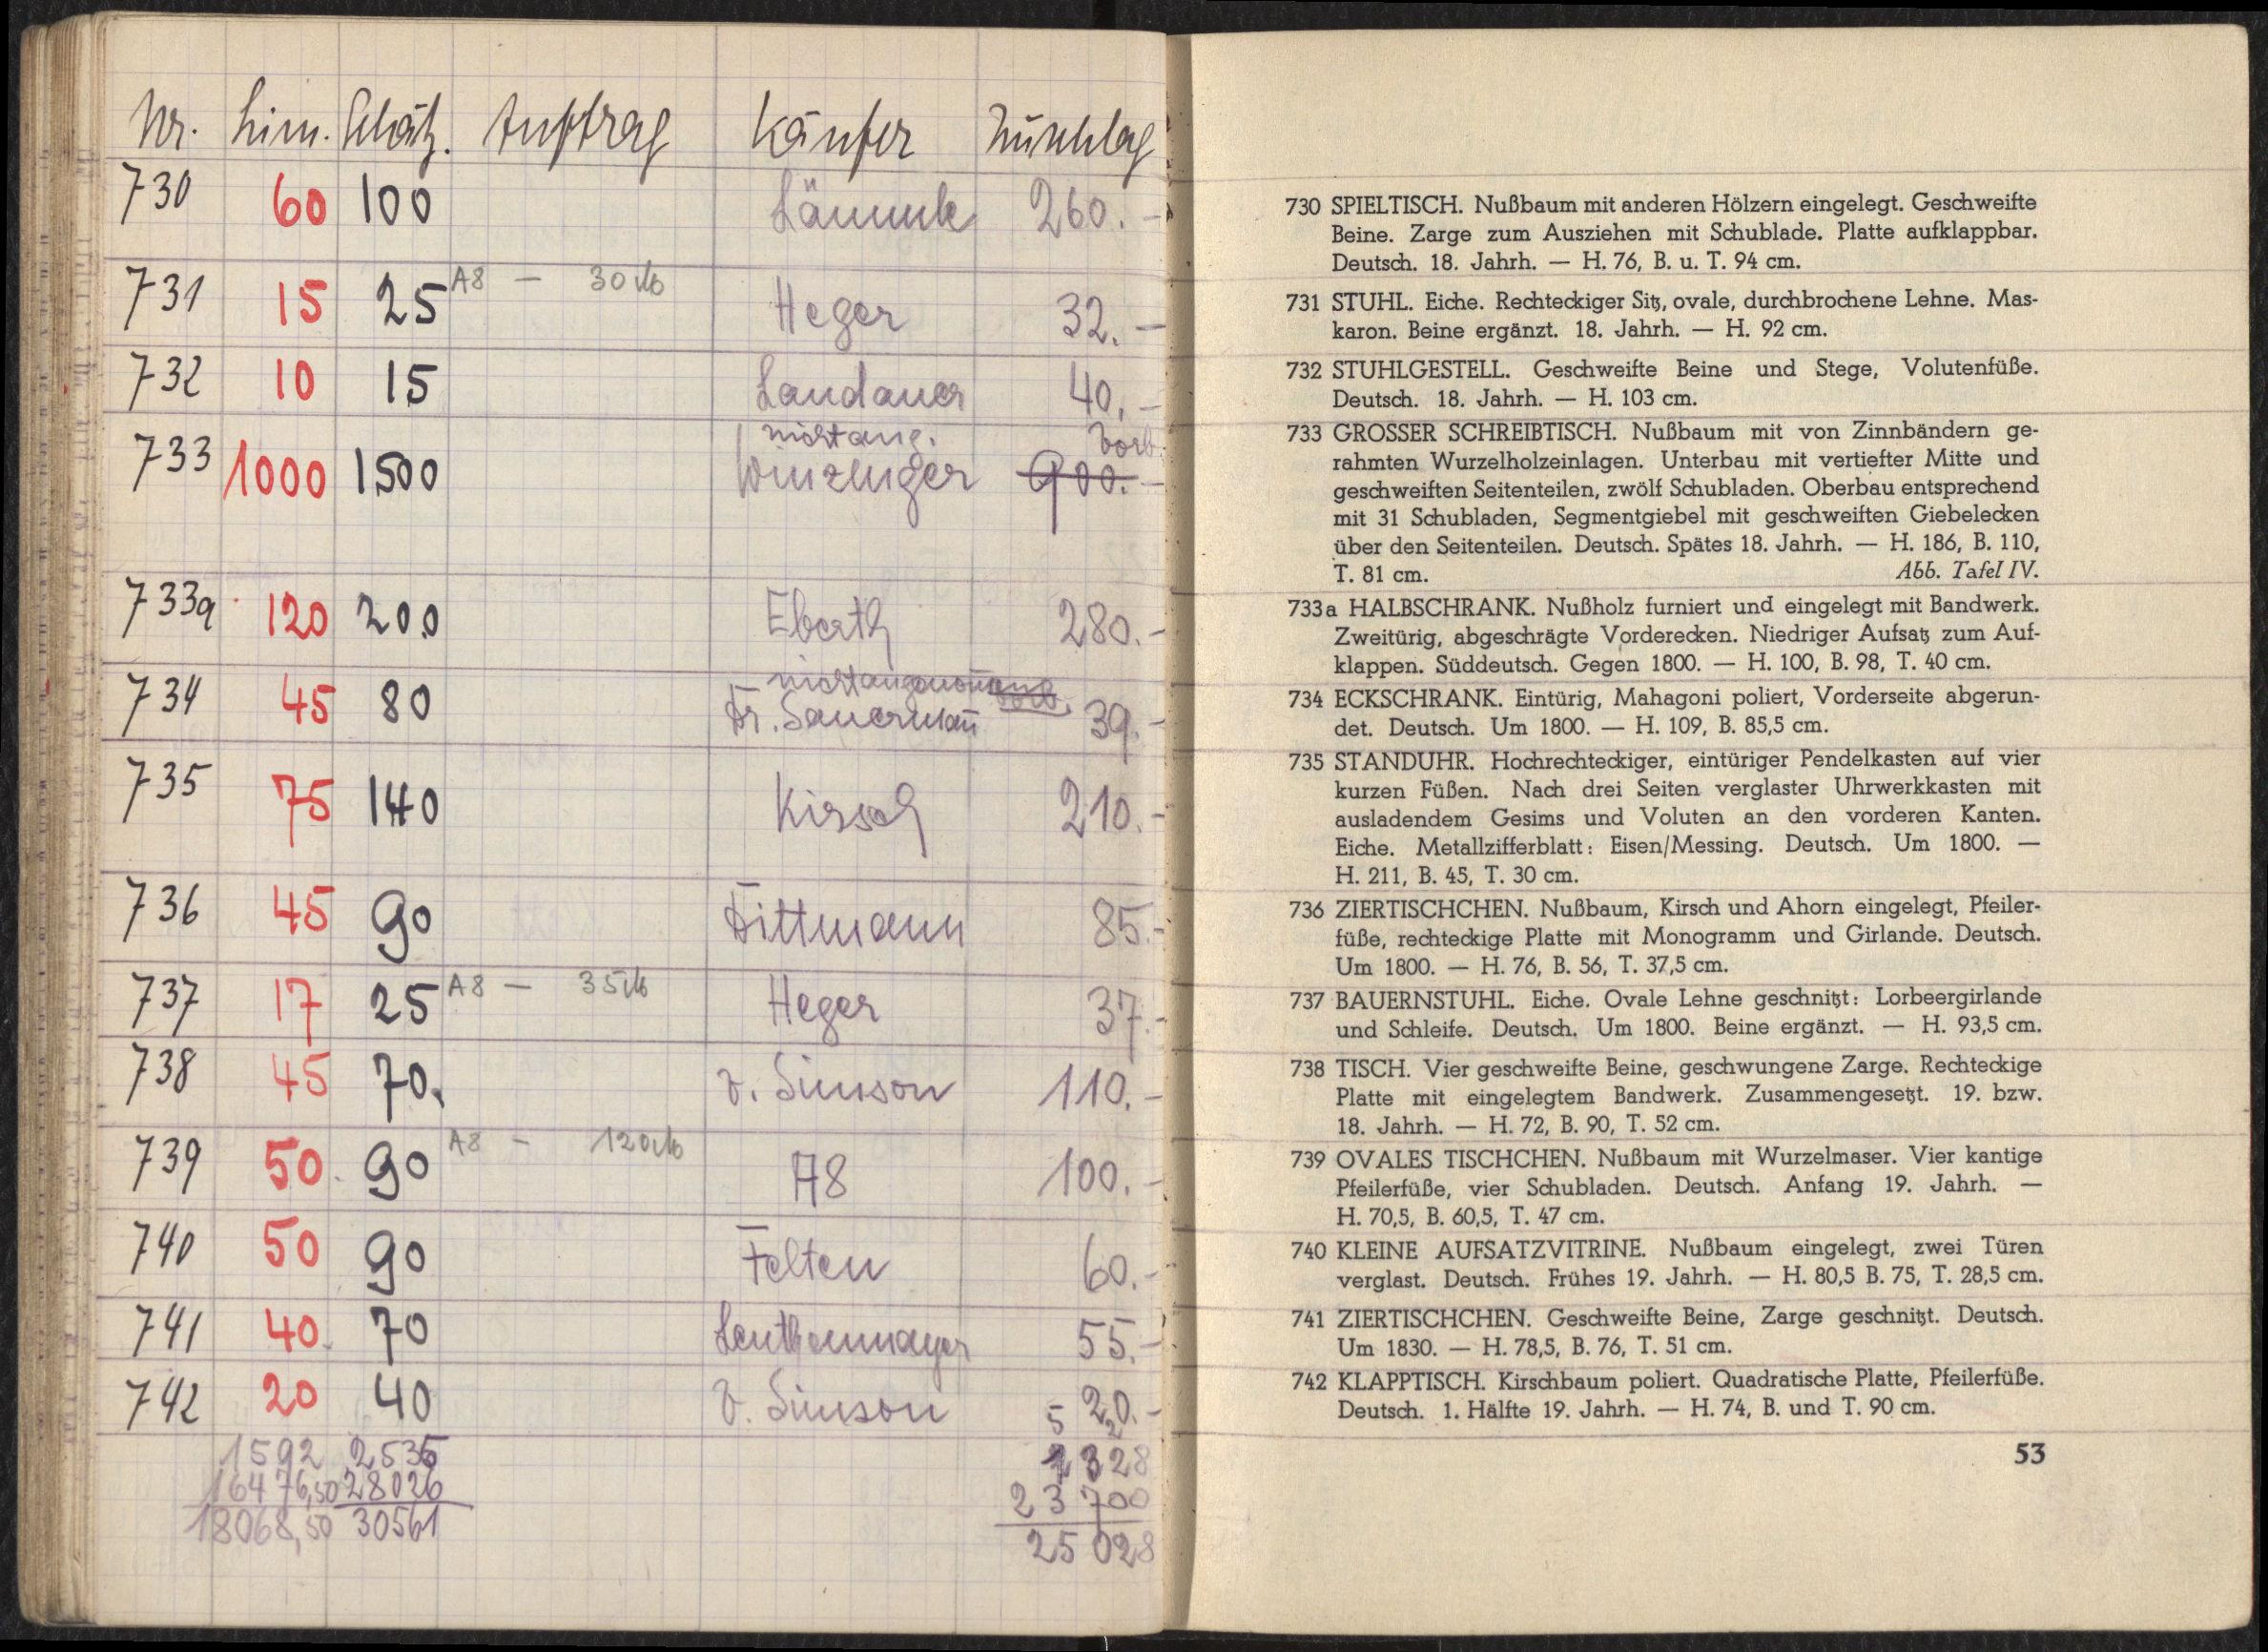 Nr. Lim. Schätz. Auftrag Käufer Zuschlag
730 60 100 Lämmle 260.-
731 15 25 A8 — 30 M Heger 32.-
732 10 15 Landauer 40.-
nicht ang. Vorb.
733 1000 1500 Winzinger 900.-
733a 120 200 Eberth 280.-
nicht angenommen
734 45 80 Dr. Sauermañ 39.-
735 75 140 Kirsch 210.-
736 45 90 Dittmann 85.-
737 17 25 A8 — 35 M Heger 37.-
738 45 70. v. Simson 110.-
739 50 90 A8 — 120 M A8 100.-
740 50 90 Felten 60.-
741 40 70 Leuthenmayer 55.-
742 20 40 v. Simson 20.-
1592 2535 1328
16476,50 28026 23 700
18068,50 30561 25 028
730 SPIELTISCH. Nußbaum mit anderen Hölzern eingelegt. Geschweifte
Beine. Zarge zum Ausziehen mit Schublade. Platte aufklappbar.
Deutsch. 18. Jahrh. — H. 76, B. u. T. 94 cm.
731 STUHL. Eiche. Rechteckiger Sitz, ovale, durchbrochene Lehne. Mas-
karon. Beine ergänzt. 18. Jahrh. — H. 92 cm.
732 STUHLGESTELL. Geschweifte Beine und Stege, Volutenfüße.
Deutsch. 18. Jahrh. — H. 103 cm.
733 GROSSER SCHREIBTISCH. Nußbaum mit von Zinnbändern ge-
rahmten Wurzelholzeinlagen. Unterbau mit vertiefter Mitte und
geschweiften Seitenteilen, zwölf Schubladen. Oberbau entsprechend
mit 31 Schubladen, Segmentgiebel mit geschweiften Giebelecken
über den Seitenteilen. Deutsch. Spätes 18. Jahrh. — H. 186, B. 110,
T. 81 cm. Abb. Tafel IV.
733a HALBSCHRANK. Nußholz furniert und eingelegt mit Bandwerk.
Zweitürig, abgeschrägte Vorderecken. Niedriger Aufsatz zum Auf-
klappen. Süddeutsch. Gegen 1800. — H. 100, B. 98, T. 40 cm.
734 ECKSCHRANK. Eintürig, Mahagoni poliert, Vorderseite abgerun-
det. Deutsch. Um 1800. — H. 109, B. 85,5 cm.
735 STANDUHR. Hochrechteckiger, eintüriger Pendelkasten auf vier
kurzen Füßen. Nach drei Seiten verglaster Uhrwerkkasten mit
ausladendem Gesims und Voluten an den vorderen Kanten.
Eiche. Metallzifferblatt: Eisen/Messing. Deutsch. Um 1800. —
H. 211, B. 45, T. 30 cm.
736 ZIERTISCHCHEN. Nußbaum, Kirsch und Ahorn eingelegt, Pfeiler-
füße, rechteckige Platte mit Monogramm und Girlande. Deutsch.
Um 1800. — H. 76, B. 56, T. 37,5 cm.
737 BAUERNSTUHL. Eiche. Ovale Lehne geschnitzt: Lorbeergirlande
und Schleife. Deutsch. Um 1800. Beine ergänzt. — H. 93,5 cm.
738 TISCH. Vier geschweifte Beine, geschwungene Zarge. Rechteckige
Platte mit eingelegtem Bandwerk. Zusammengesetzt. 19. bzw.
18. Jahrh. — H. 72, B. 90, T. 52 cm.
739 OVALES TISCHCHEN. Nußbaum mit Wurzelmaser. Vier kantige
Pfeilerfüße, vier Schubladen. Deutsch. Anfang 19. Jahrh. —
H. 70,5, B. 60,5, T. 47 cm.
740 KLEINE AUFSATZVITRINE. Nußbaum eingelegt, zwei Türen
verglast. Deutsch. Frühes 19. Jahrh. — H. 80,5 B. 75, T. 28,5 cm.
741 ZIERTISCHCHEN. Geschweifte Beine, Zarge geschnitzt. Deutsch.
Um 1830. — H. 78,5, B. 76, T. 51 cm.
742 KLAPPTISCH. Kirschbaum poliert. Quadratische Platte, Pfeilerfüße.
Deutsch. 1. Hälfte 19. Jahrh. — H. 74, B. und T. 90 cm.
53